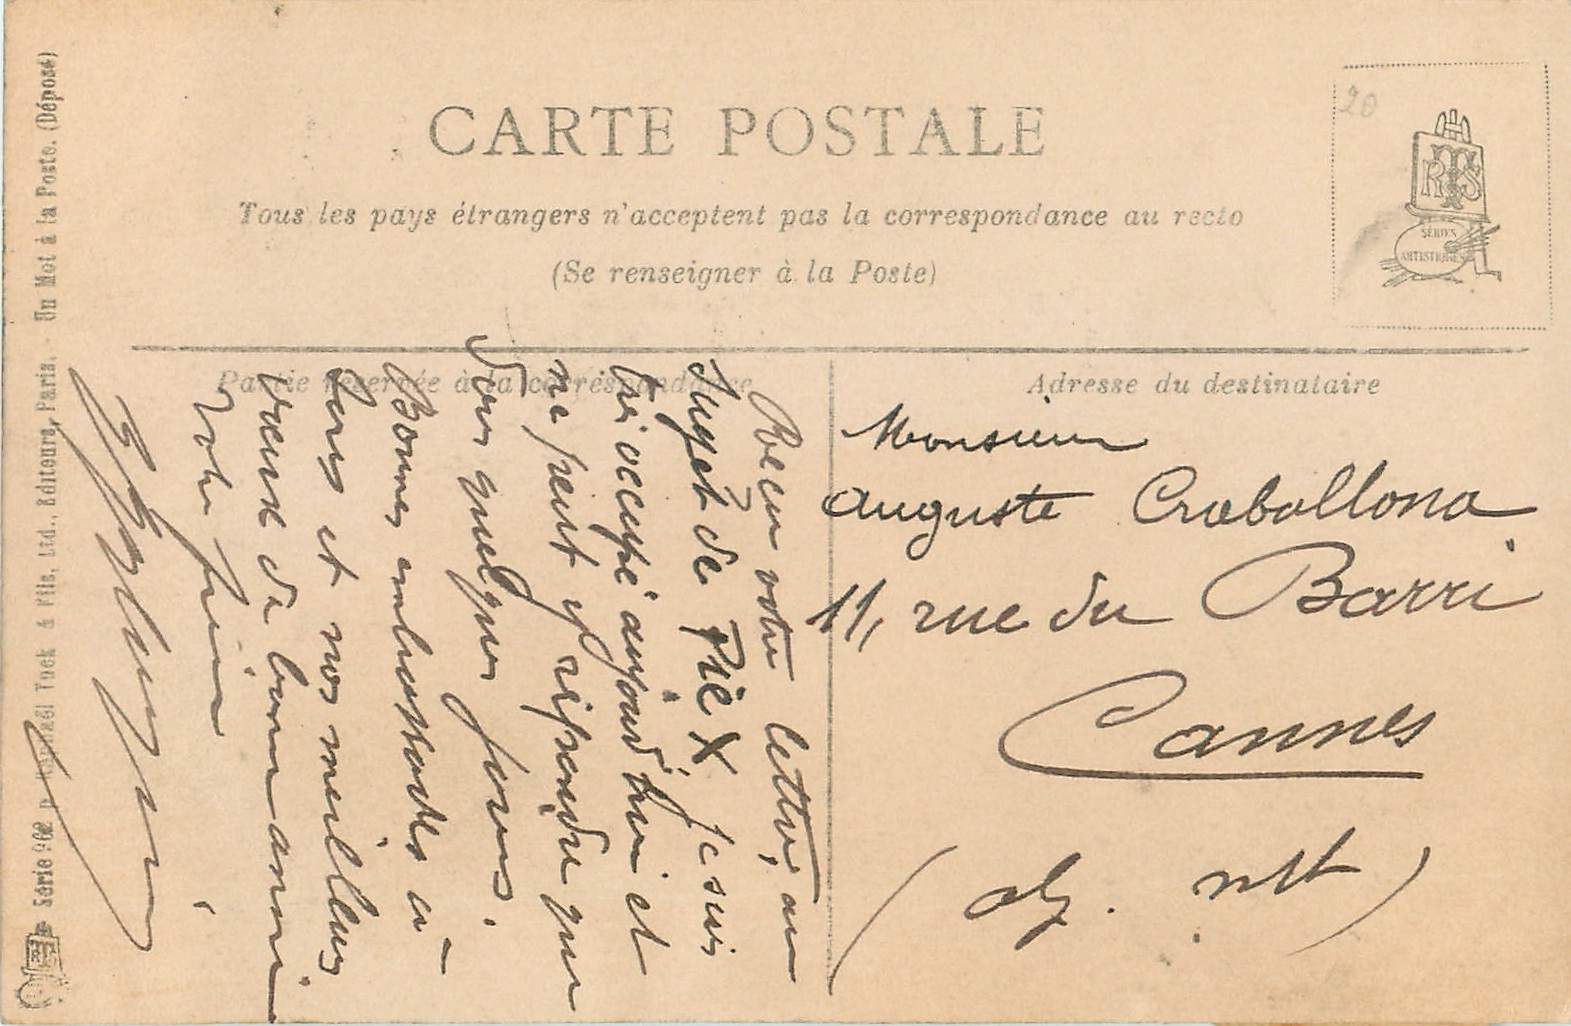 CARTE POSTALE
Tous les pays étrangers n'acceptent pas la correspondance au recto
(Se renseigner à la Poste)
20
RTS
SÉRIES
ARTISTIQUES
Partie réservée à la correspondance
Adresse du destinataire
Monsieur
Auguste Craballona
11, rue du Barri
Cannes
(alp. mt)
Recu votre lettre, au
sujet de Pie X je suis
très occupé aujourd'hui et
ne peut y repondre que
dans quelques jours.
Bonnes embrassades à
tous et nos meilleurs
voeux de bonne année
Votre
Série 962 p. Raphaël Tuck & Fils, Ltd., Editeurs, Paris. - Un Mot à la Poste. (Déposé)